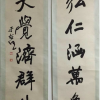 弘仁涵萬象
大覺濟群生